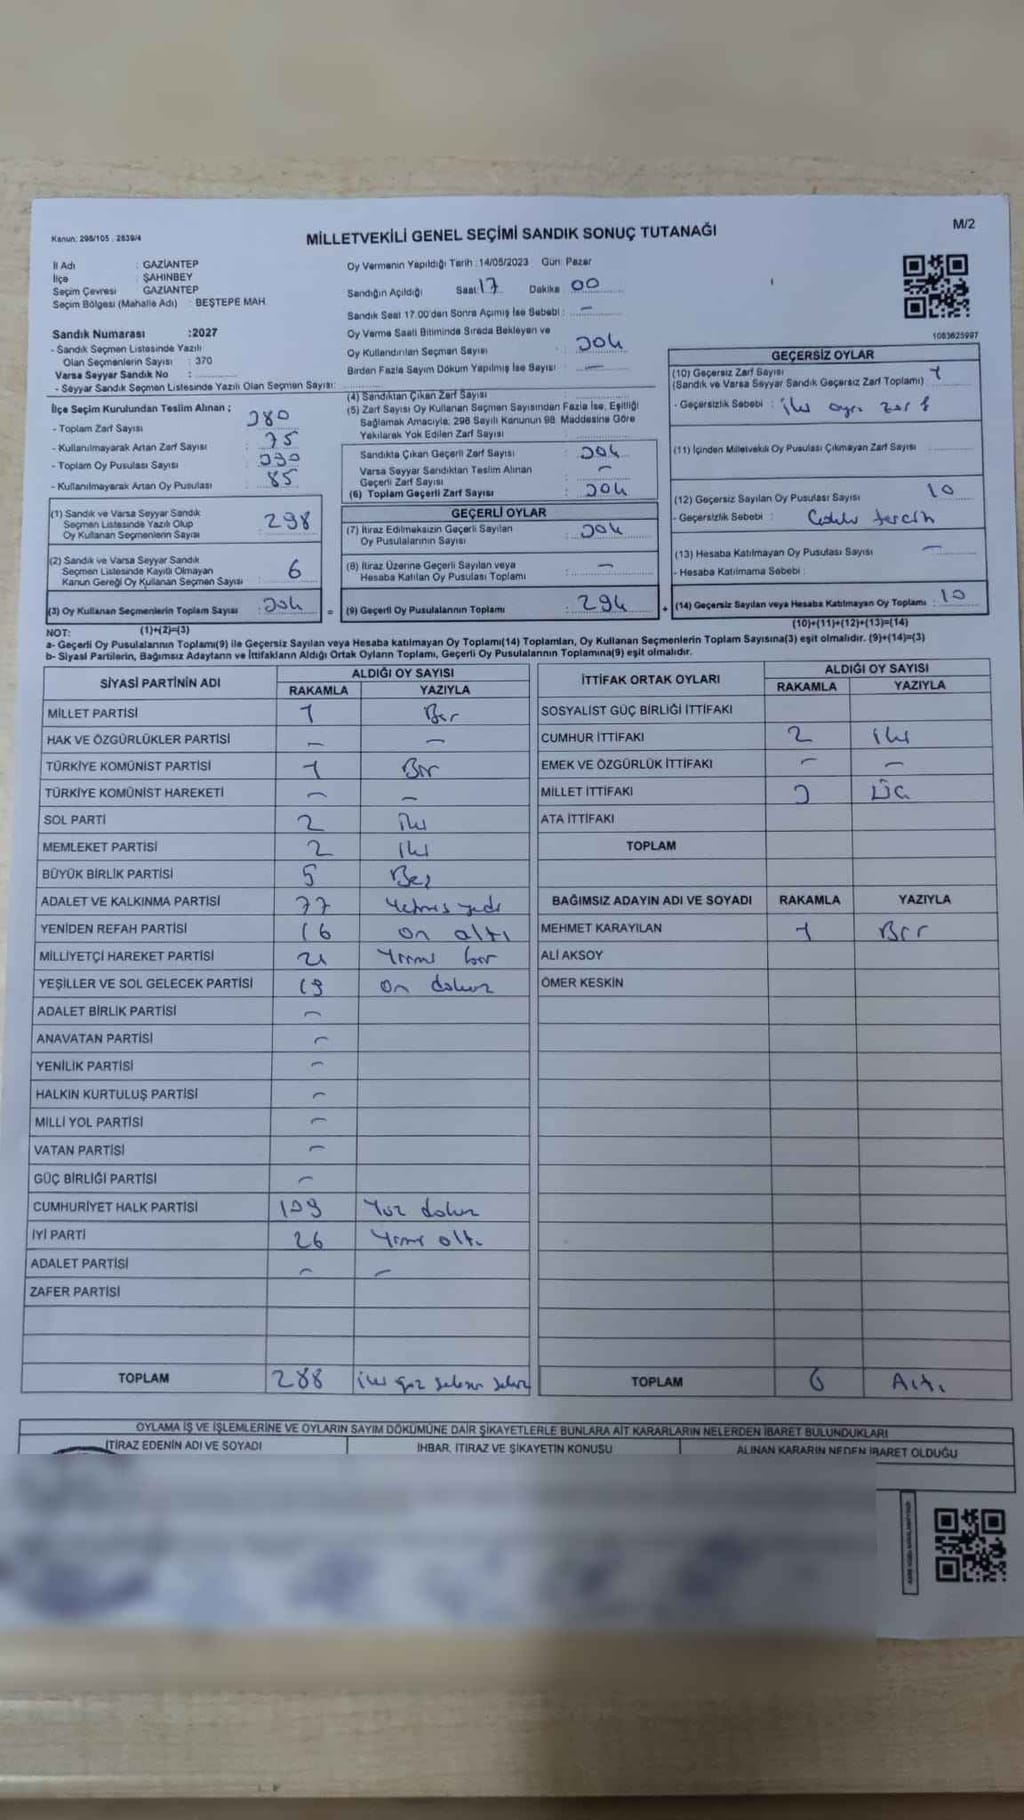 Kanun: 298/105 , 2839/4
MİLLETVEKİLİ GENEL SEÇİMİ SANDIK SONUÇ TUTANAĞI
M/2
İl Adı : GAZİANTEP
İlçe : ŞAHİNBEY
Seçim Çevresi : GAZİANTEP
Seçim Bölgesi (Mahalle Adı) : BEŞTEPE MAH.
Sandık Numarası :2027
- Sandık Seçmen Listesinde Yazılı
Olan Seçmenlerin Sayısı : 370
Varsa Seyyar Sandık No :
- Seyyar Sandık Seçmen Listesinde Yazılı Olan Seçmen Sayısı:
İlçe Seçim Kurulundan Teslim Alınan ;
- Toplam Zarf Sayısı : 380
- Kullanılmayarak Artan Zarf Sayısı : 75
- Toplam Oy Pusulası Sayısı : 390
- Kullanılmayarak Artan Oy Pusulası : 85
(1) Sandık ve Varsa Seyyar Sandık
Seçmen Listesinde Yazılı Olup
Oy Kullanan Seçmenlerin Sayısı : 298
(2) Sandık ve Varsa Seyyar Sandık
Seçmen Listesinde Kayıtlı Olmayan
Kanun Gereği Oy Kullanan Seçmen Sayısı : 6
(3) Oy Kullanan Seçmenlerin Toplam Sayısı : 304
Oy Vermenin Yapıldığı Tarih : 14/05/2023 Gün: Pazar
Sandığın Açıldığı Saat 17 Dakika 00
Sandık Saat 17.00'den Sonra Açılmış İse Sebebi : –
Oy Verme Saati Bitiminde Sırada Bekleyen ve
Oy Kullandırılan Seçmen Sayısı : 304
Birden Fazla Sayım Döküm Yapılmış İse Sayısı : –
(4) Sandıktan Çıkan Zarf Sayısı :
(5) Zarf Sayısı Oy Kullanan Seçmen Sayısından Fazla İse, Eşitliği
Sağlamak Amacıyla; 298 Sayılı Kanunun 98. Maddesine Göre
Yakılarak Yok Edilen Zarf Sayısı :
Sandıkta Çıkan Geçerli Zarf Sayısı : 304
Varsa Seyyar Sandıktan Teslim Alınan
Geçerli Zarf Sayısı : –
(6) Toplam Geçerli Zarf Sayısı : 304
GEÇERLİ OYLAR
(7) İtiraz Edilmeksizin Geçerli Sayılan
Oy Pusulalarının Sayısı : 304
(8) İtiraz Üzerine Geçerli Sayılan veya
Hesaba Katılan Oy Pusulası Toplamı : –
= (9) Geçerli Oy Pusulalarının Toplamı : 294
1083625997
GEÇERSİZ OYLAR
(10) Geçersiz Zarf Sayısı 1
(Sandık ve Varsa Seyyar Sandık Geçersiz Zarf Toplamı) :
- Geçersizlik Sebebi : iki ayrı zarf
(11) İçinden Milletvekili Oy Pusulası Çıkmayan Zarf Sayısı :
(12) Geçersiz Sayılan Oy Pusulası Sayısı : 10
- Geçersizlik Sebebi : tercih
(13) Hesaba Katılmayan Oy Pusulası Sayısı : –
- Hesaba Katılmama Sebebi :
+ (14) Geçersiz Sayılan veya Hesaba Katılmayan Oy Toplamı : 10
NOT: (1)+(2)=(3) (10)+(11)+(12)+(13)=(14)
a- Geçerli Oy Pusulalarının Toplamı(9) ile Geçersiz Sayılan veya Hesaba katılmayan Oy Toplamı(14) Toplamları, Oy Kullanan Seçmenlerin Toplam Sayısına(3) eşit olmalıdır. (9)+(14)=(3)
b- Siyasi Partilerin, Bağımsız Adayların ve İttifakların Aldığı Ortak Oyların Toplamı, Geçerli Oy Pusulalarının Toplamına(9) eşit olmalıdır.
SİYASİ PARTİNİN ADI ALDIĞI OY SAYISI
RAKAMLA YAZIYLA
MİLLET PARTİSİ 1 Bir
HAK VE ÖZGÜRLÜKLER PARTİSİ – –
TÜRKİYE KOMÜNİST PARTİSİ 1 Bir
TÜRKİYE KOMÜNİST HAREKETİ – –
SOL PARTİ 2 iki
MEMLEKET PARTİSİ 2 iki
BÜYÜK BİRLİK PARTİSİ 5 Beş
ADALET VE KALKINMA PARTİSİ 77 Yetmiş yedi
YENİDEN REFAH PARTİSİ 16 on altı
MİLLİYETÇİ HAREKET PARTİSİ 21 Yirmi bir
YEŞİLLER VE SOL GELECEK PARTİSİ 19 on dokuz
ADALET BİRLİK PARTİSİ –
ANAVATAN PARTİSİ –
YENİLİK PARTİSİ –
HALKIN KURTULUŞ PARTİSİ –
MİLLİ YOL PARTİSİ –
VATAN PARTİSİ –
GÜÇ BİRLİĞİ PARTİSİ –
CUMHURİYET HALK PARTİSİ 109 Yüz dokuz
İYİ PARTİ 26 Yirmi altı
ADALET PARTİSİ – –
ZAFER PARTİSİ
TOPLAM 288 iki yüz seksen sekiz
İTTİFAK ORTAK OYLARI ALDIĞI OY SAYISI
RAKAMLA YAZIYLA
SOSYALİST GÜÇ BİRLİĞİ İTTİFAKI
CUMHUR İTTİFAKI 2 iki
EMEK VE ÖZGÜRLÜK İTTİFAKI – –
MİLLET İTTİFAKI 3 Üç
ATA İTTİFAKI
TOPLAM
BAĞIMSIZ ADAYIN ADI VE SOYADI RAKAMLA YAZIYLA
MEHMET KARAYILAN 1 Bir
ALİ AKSOY
ÖMER KESKİN
TOPLAM 6 Altı
OYLAMA İŞ VE İŞLEMLERİNE VE OYLARIN SAYIM DÖKÜMÜNE DAİR ŞİKAYETLERLE BUNLARA AİT KARARLARIN NELERDEN İBARET BULUNDUKLARI
İTİRAZ EDENİN ADI VE SOYADI İHBAR, İTİRAZ VE ŞİKAYETİN KONUSU ALINAN KARARIN NEDEN İBARET OLDUĞU